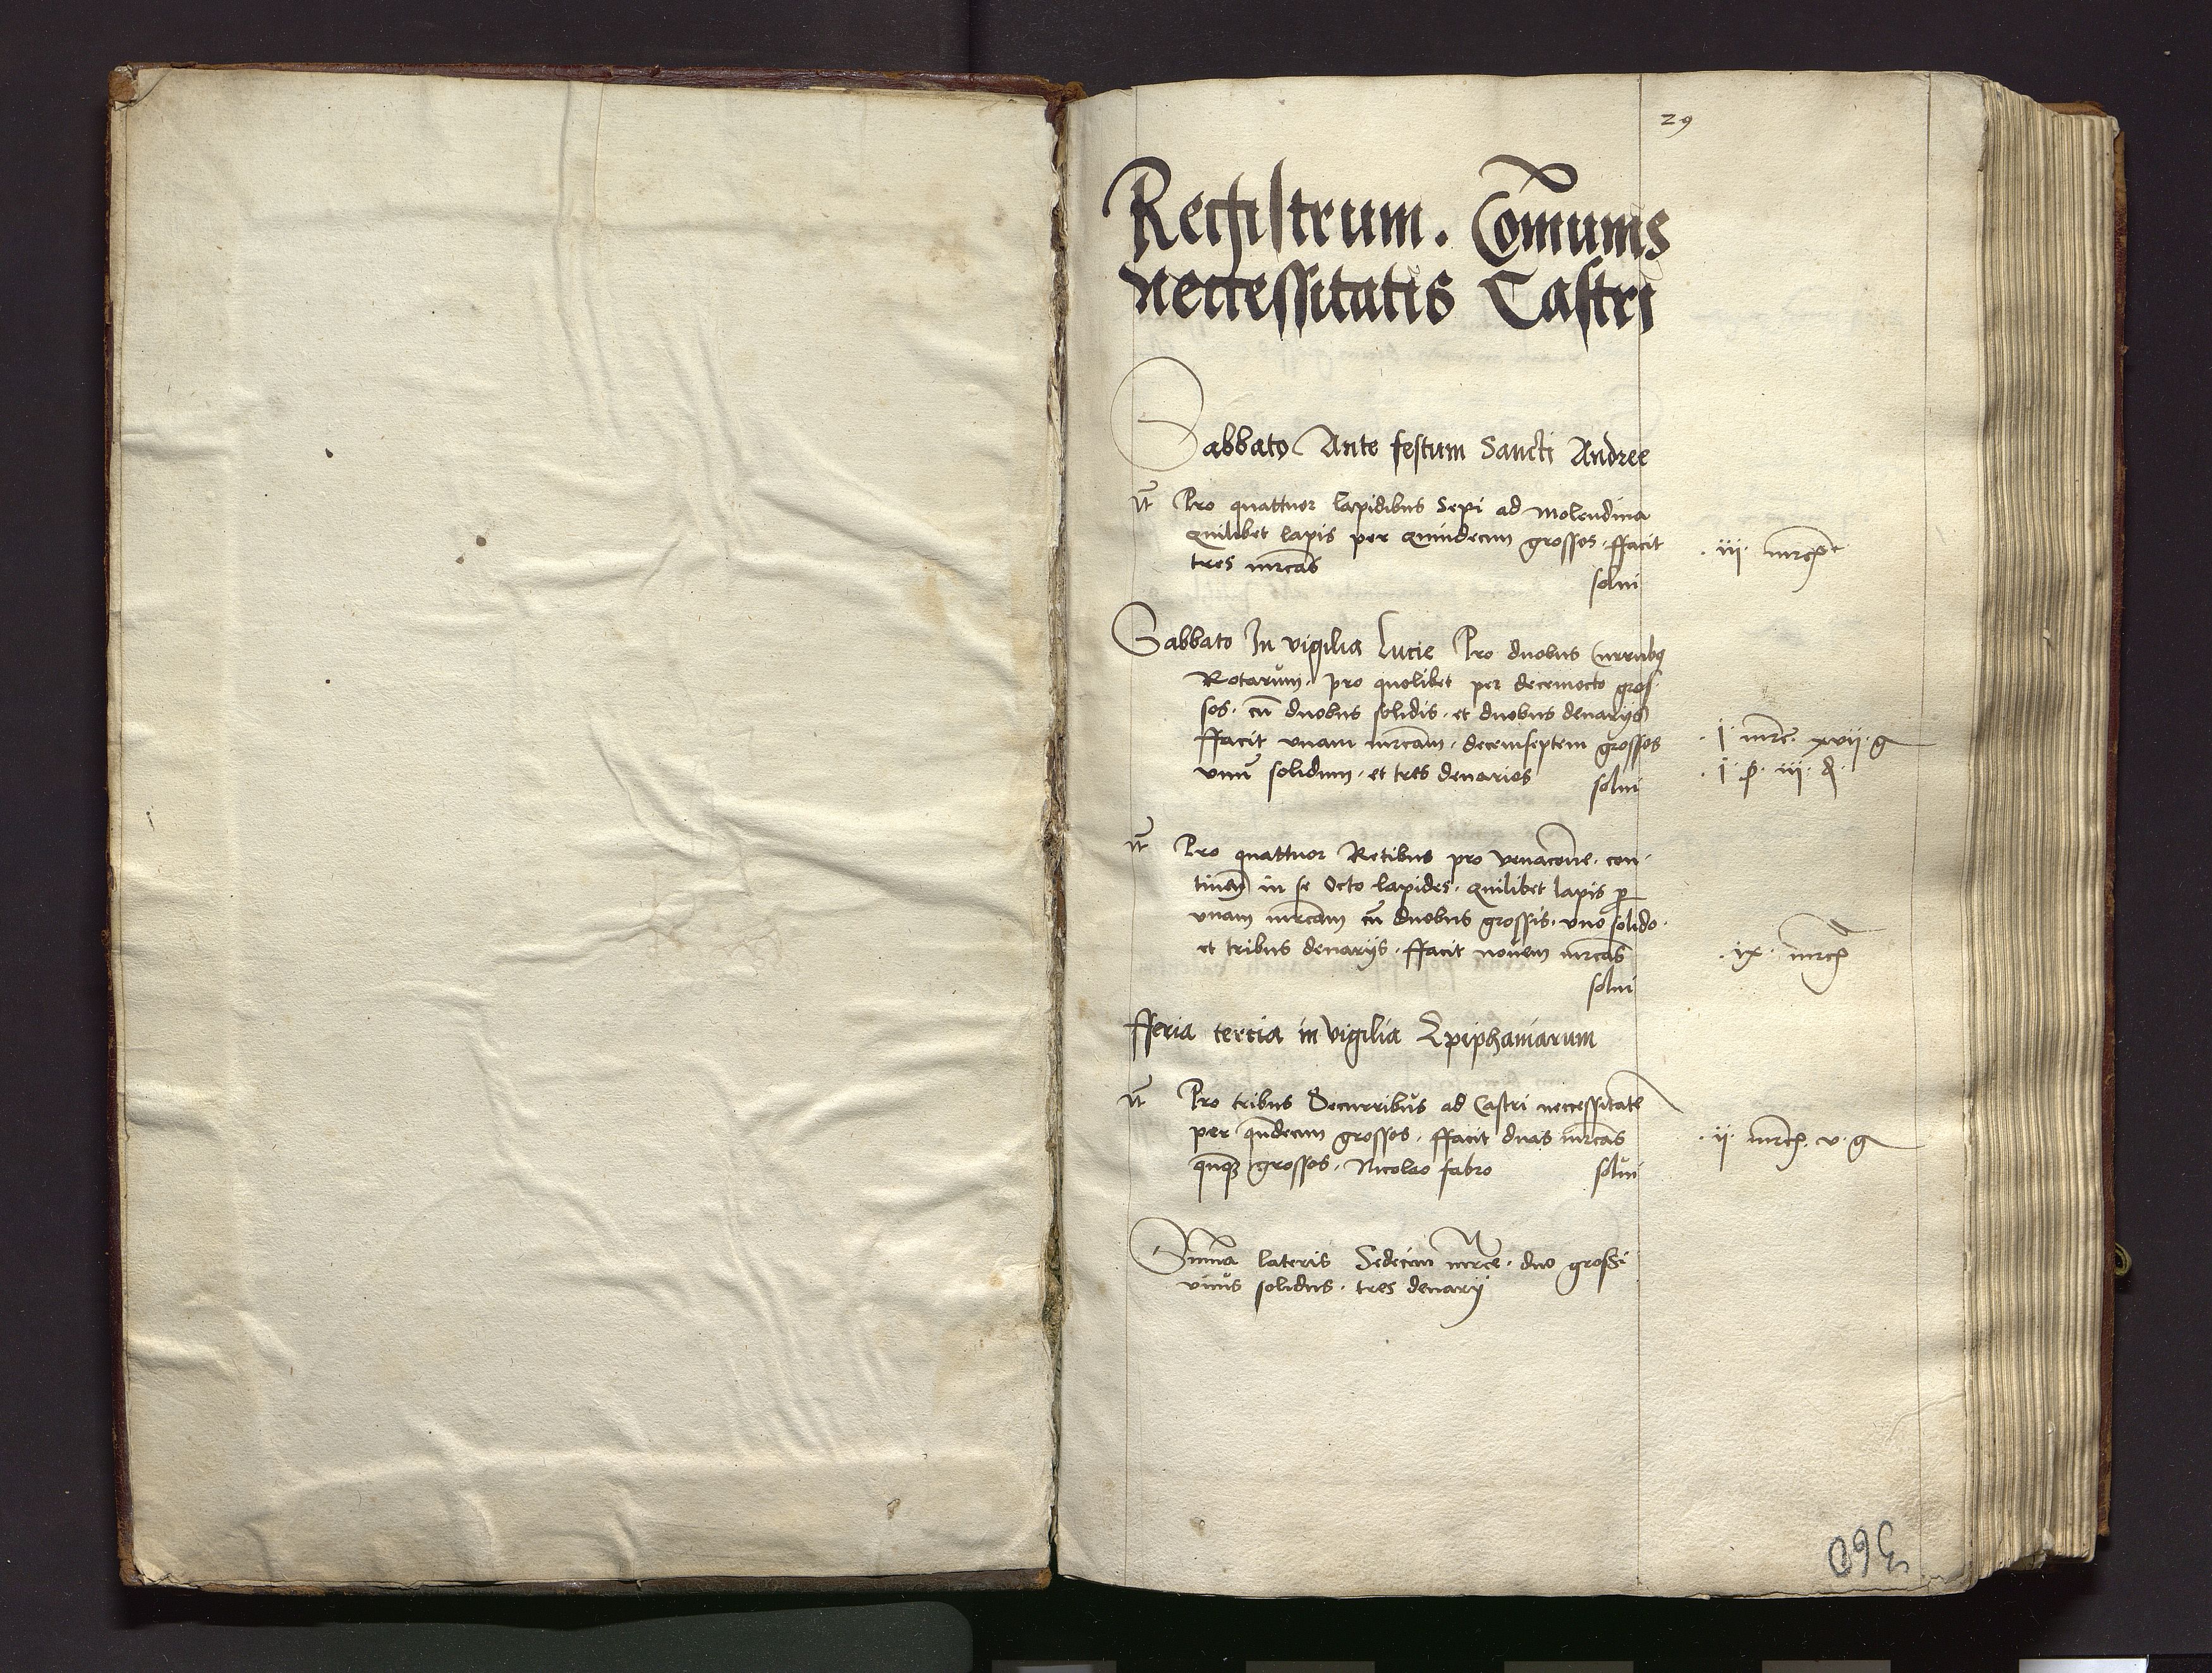 29
Registrum. Co̅munis
necessitatis Castri
Sabbato Ante festum Sancti Andree
It̅ Pro quattuor lapidibus Sepi ad molendina
quilibet lapis per quindecim grossos. ffacit
tres mrcas
solui
. iij. mrc̅
Sabbato In vigilia Lucie Pro duobus Curribq
Rotarum. pro quolibet per decemocto gros
sos. cu̅ duobus solidis. et duobus denarijs
ffacit vnam mrcam. decemseptem grossos
vnu̅ solidum. et tres denarios
solui
. j. mrc̅. xvij. g
. j. ꝑ. iij. d.
It̅ Pro quattuor Retibus pro venac̅one. con
tinen̅ in se Octo lapides. quilibet lapis ꝑ
vnam mrcam cu̅ duobus grossis. vno solido.
et tribus denarijs. ffacit nouem mrcas
solui
. ix. mrc̅
fferia tercia in vigilia Epiphaniarum
It̅ Pro tribus Securribus ad Castri necessitate̅
per qndecim grossos. ffacit duas mrcas
qnqꝫ grossos. Nicolao fabro
solui
. ij. mrc̅. v. g
Summa lateris Sedecim mrce. duo grossi
vnus solidus. tres denarij
360